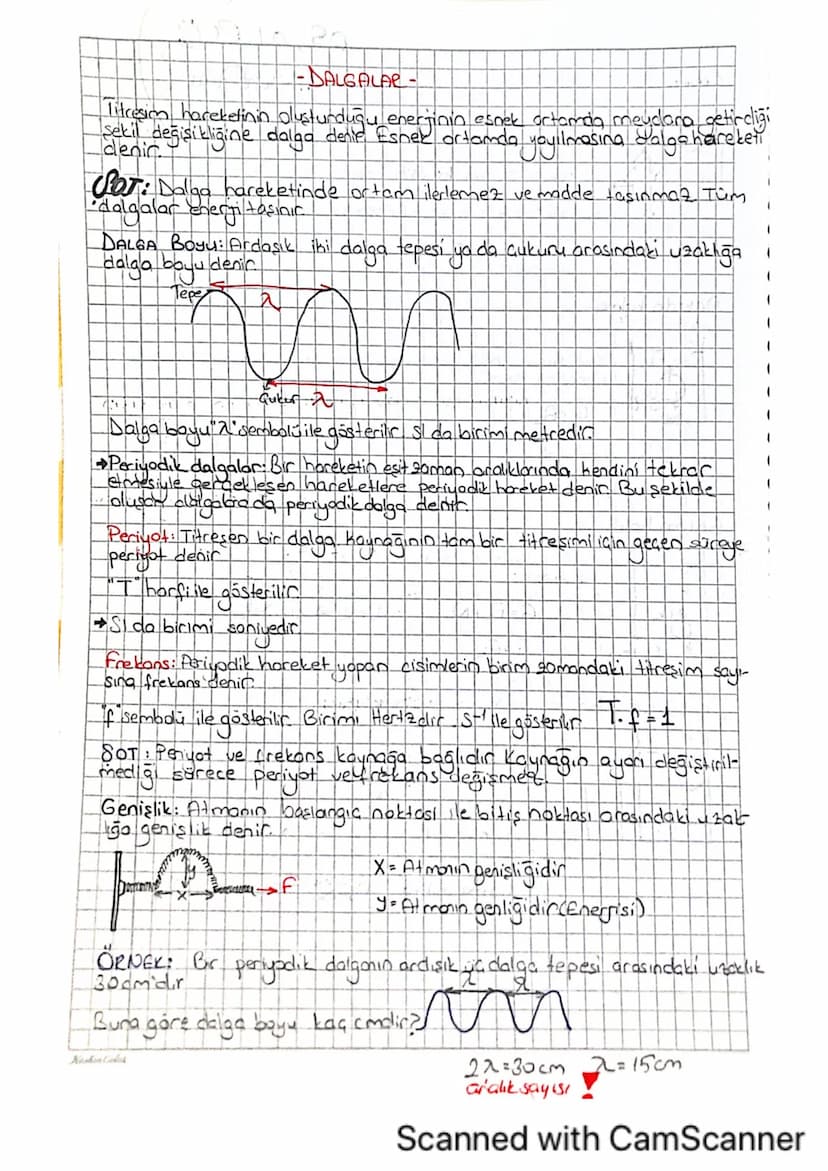 -DALGALAR-
Titreşim hareketinin oluşturduğu enerjinin esnek ortamda meydana getirdiği
şekil değişikliğine dalga denir Esnek ortamda yayılmasına dalga hareketi
denir.
SOT: Dalga hareketinde ortam ilerlemez ve madde taşınmaz Tüm
dalgalar enerji taşınır
DALGA BOYU: Ardaşık iki dalga tepesi ya da çukuru arasındaki uzaklığa
dalga boyu denir
Tepe λ
Çukur λ
Dalga boyu "λ" sembolü ile gösterilir. SI da birimi metredir.
→Periyodik dalgalar: Bir hareketin eşit zaman aralıklarında kendini tekrar
etmesiyle gerçekleşen hareketlere periyodik hareket denir. Bu şekilde
oluşan dalgalara da periyodik dalga denir.
Periyot: Titreşen bir dalga kaynağının tam bir titreşimi için geçen süreye
periyot denir
"T" harfi ile gösterilir.
→SI da birimi saniyedir.
Frekans: Periyodik hareket yapan cisimlerin birim zamandaki titreşim sayı-
sına frekans denir.
"f" sembolü ile gösterilir. Birimi Hertzdir. s⁻¹ ile gösterilir T.f=1
SOT: Periyot ve frekans kaynağa bağlıdır Kaynağın ayarı değiştiril-
mediği sürece periyot ve frekans değişmez.
Genişlik: Atmanın başlangıç noktası ile bitiş noktası arasındaki uzak
lığa genişlik denir.
y x F
X= Atmanın genişliğidir
y= Atmanın genliğidir(Enerjisi)
ÖRNEK: Bir periyodik dalganın ardışık üç dalga tepesi arasındaki uzaklık
30cm'dir
λ λ
Buna göre dalga boyu kaç cmdir?
2λ=30cm λ=15cm
aralık sayısı !
Scanned with CamScanner